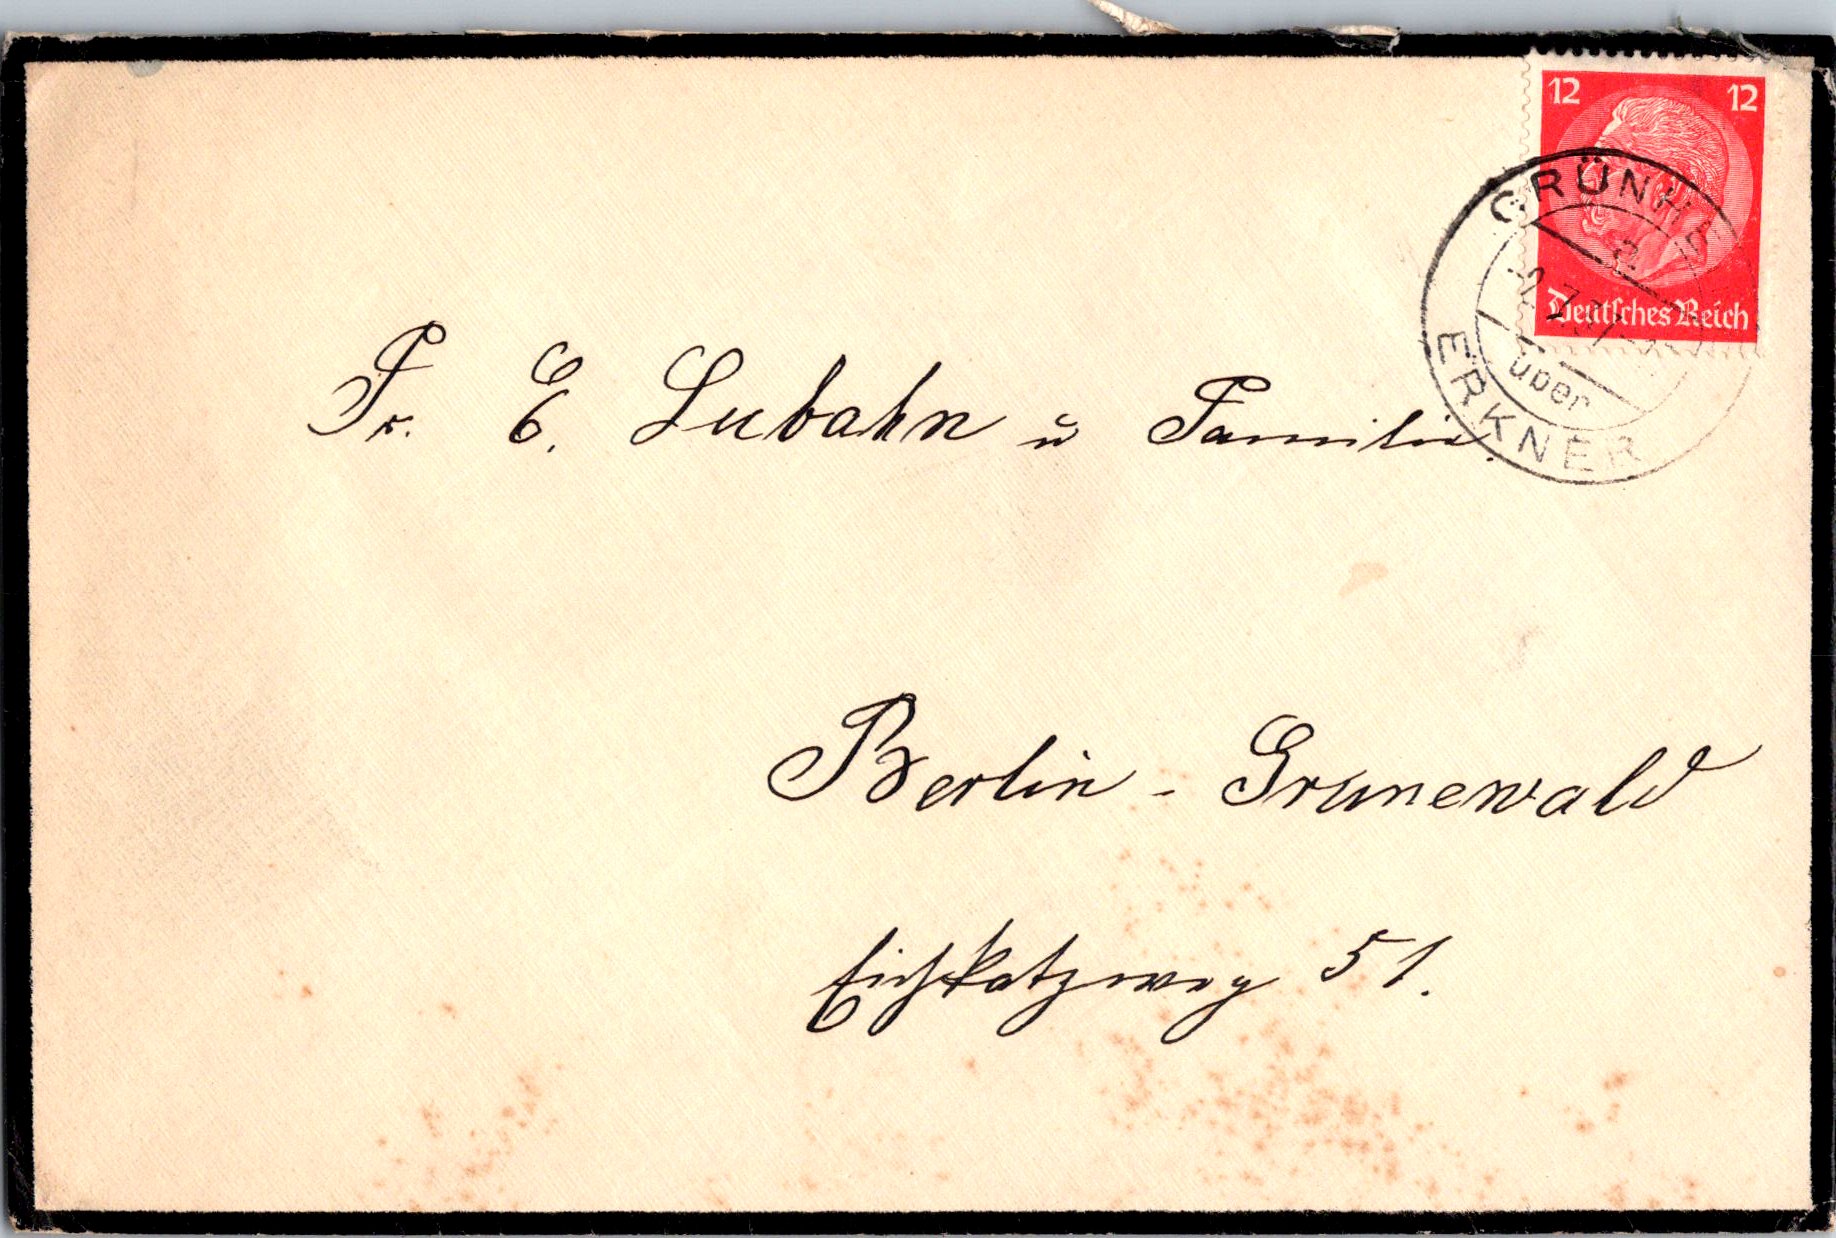 12 12
Deutsches Reich
GRÜNH
über
ERKNER
Fr. E. Lubahn u Familie.
Berlin - Grunewald
Eichkatzweg 51.